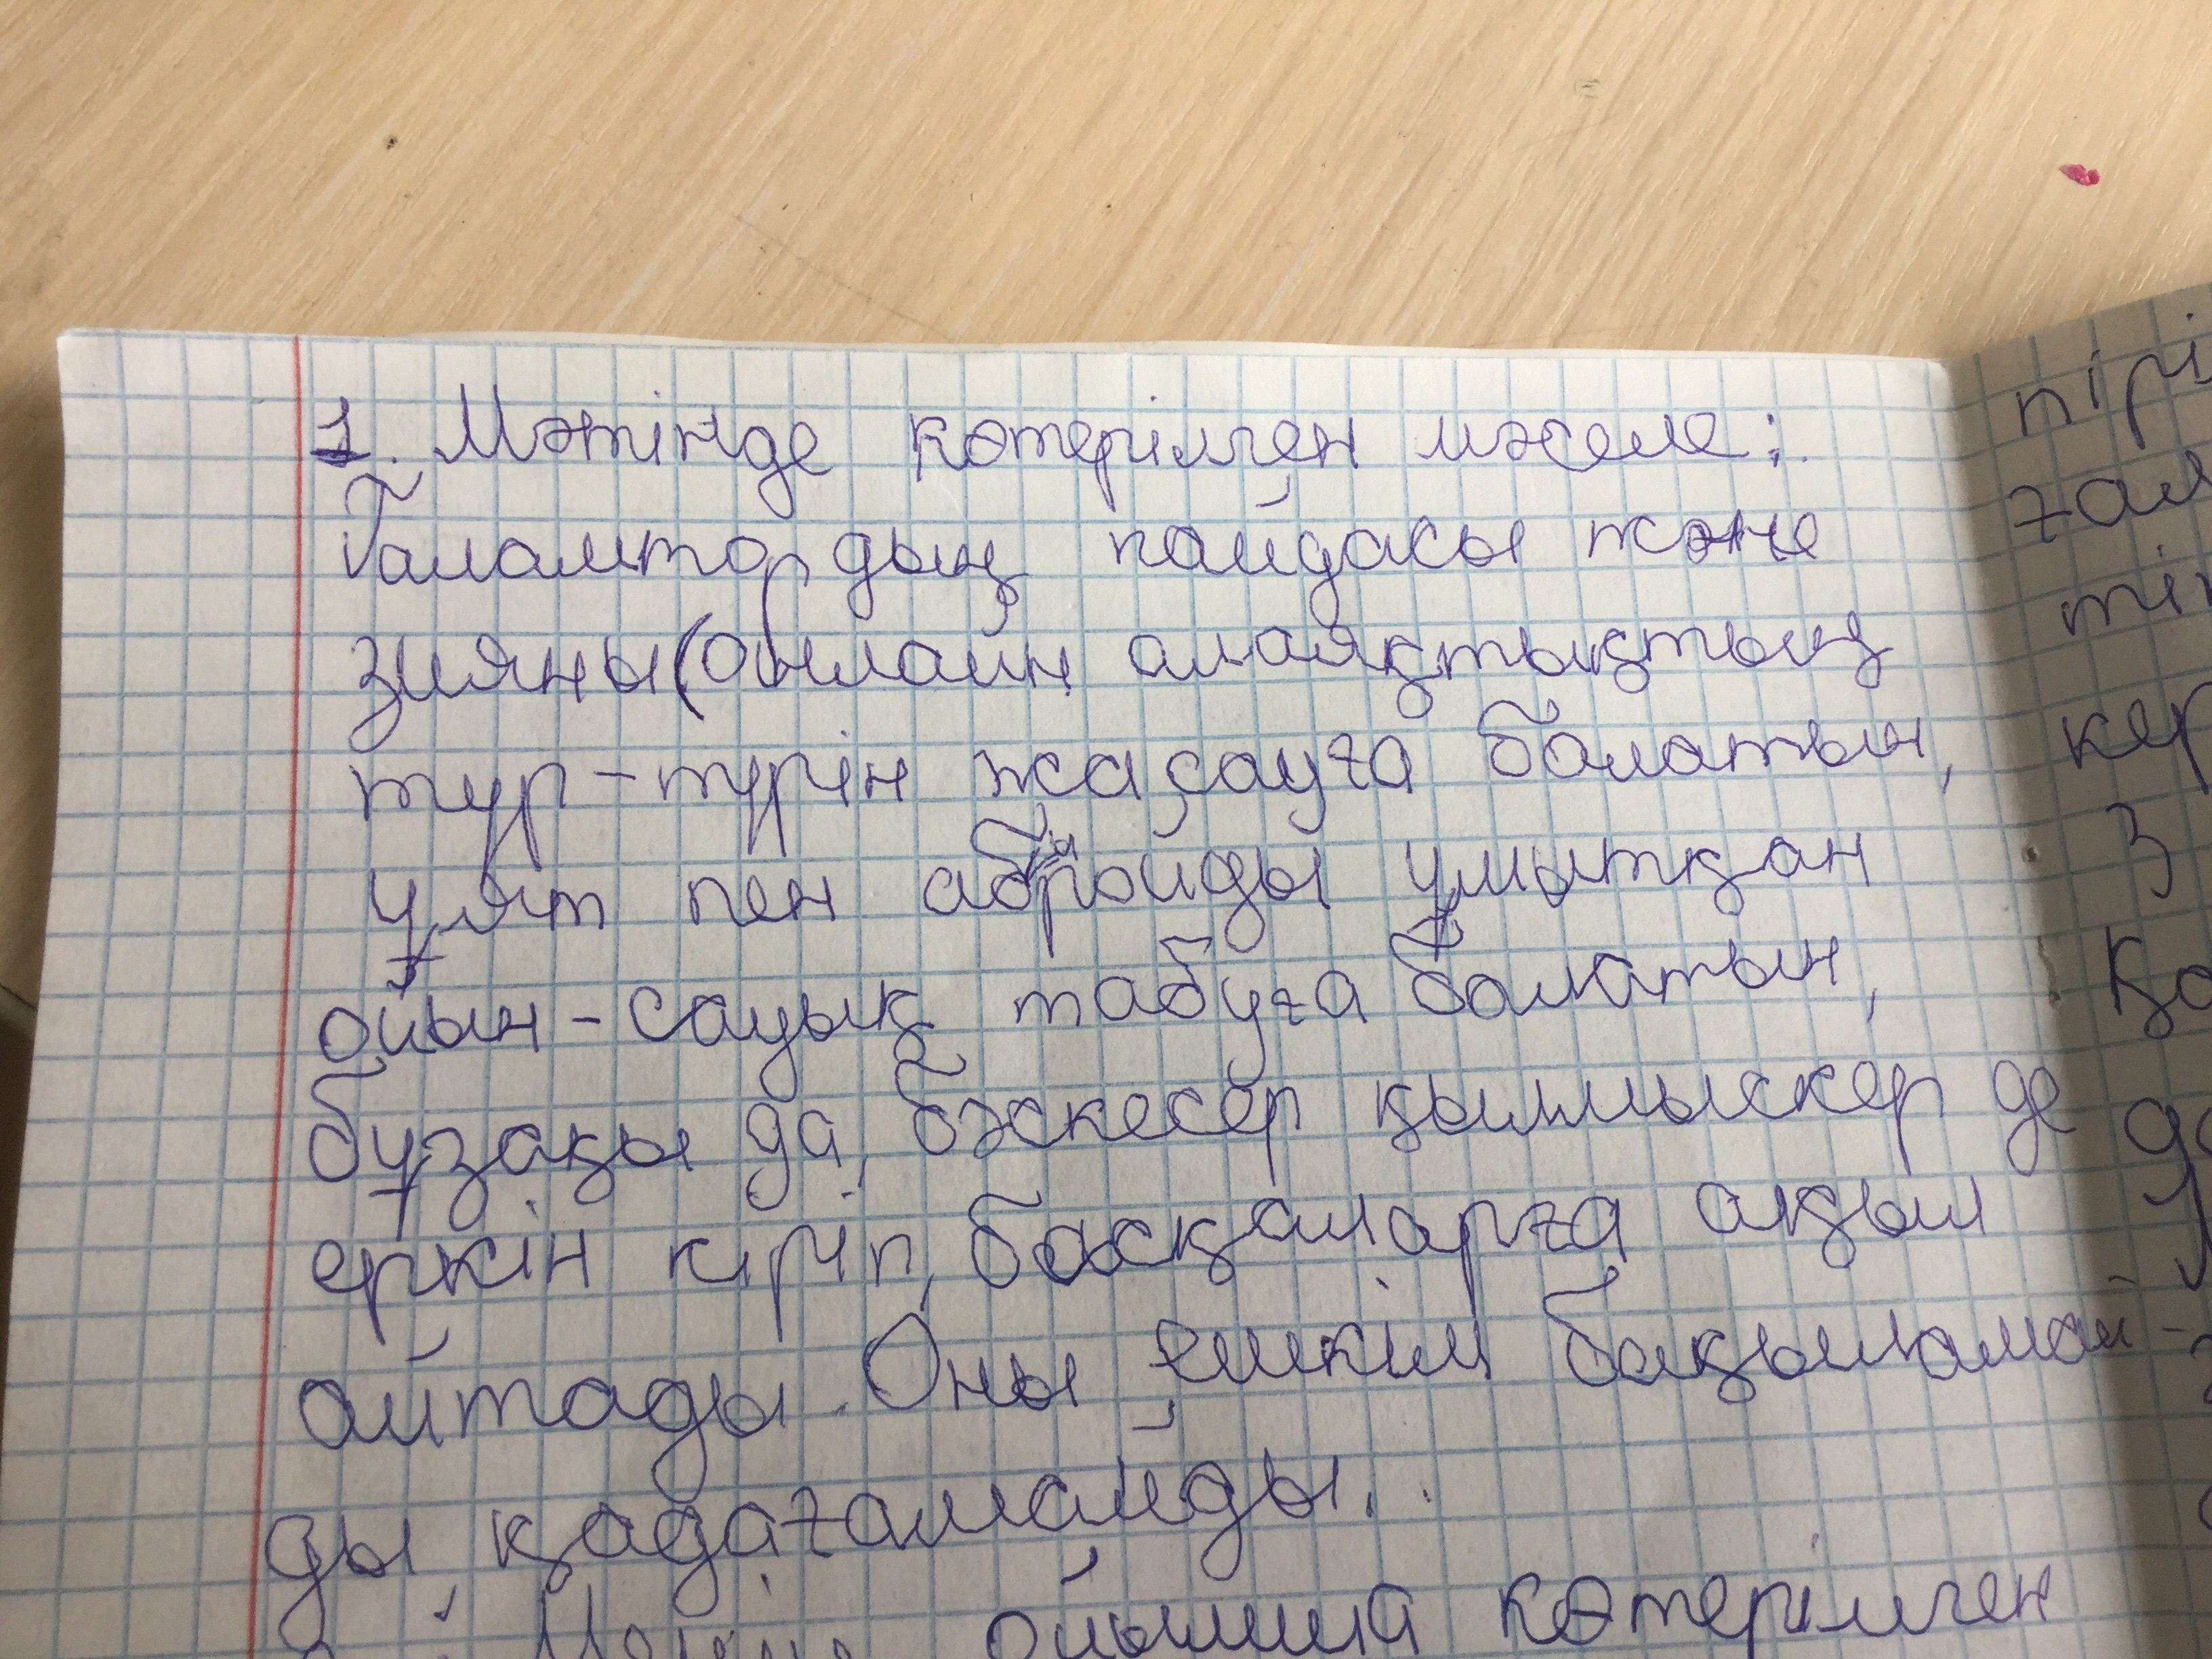 1. Мәтінде көтерілген мәселе:
Ғаламтордың пайдасы және
зияны (онлайн алаяқтықтың
түр-түрін жасауға болатын,
ұят пен абройды ұмытқан
ойын-сауық табуға болатын,
бұзақы да, бәскесер қылмыскер де
еркін кіріп, басқаларға ақыл
айтады. Оны ешкім бақыламай-
ды, қадағаламайды.
ойымша көтерілген
пірі
ғал
тін
кер
3